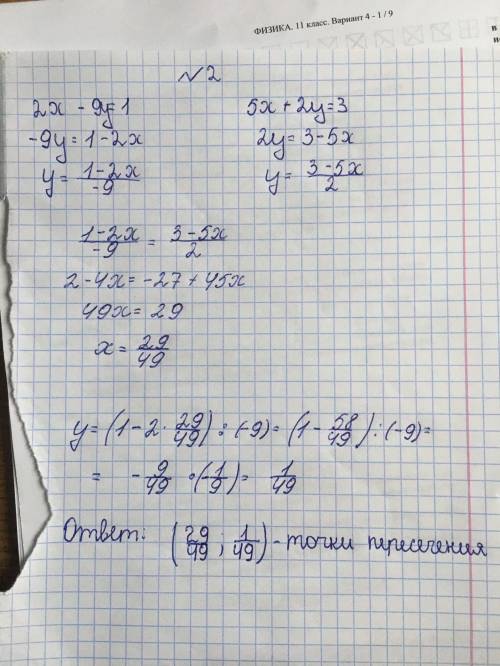 ФИЗИКА. 11 класс. Вариант 4 - 1 / 9
в
№2
2x - 9y=1 5x + 2y=3
-9y = 1-2x 2y = 3-5x
y = (1-2x)/(-9) y = (3-5x)/2
(1-2x)/(-9) = (3-5x)/2
2-4x = -27 + 45x
49x = 29
x = 29/49
y = (1-2· 29/49) : (-9) = (1- 58/49) : (-9) =
= - 9/49 · (-1/9) = 1/49
Ответ: (29/49 ; 1/49) - точки пересечения